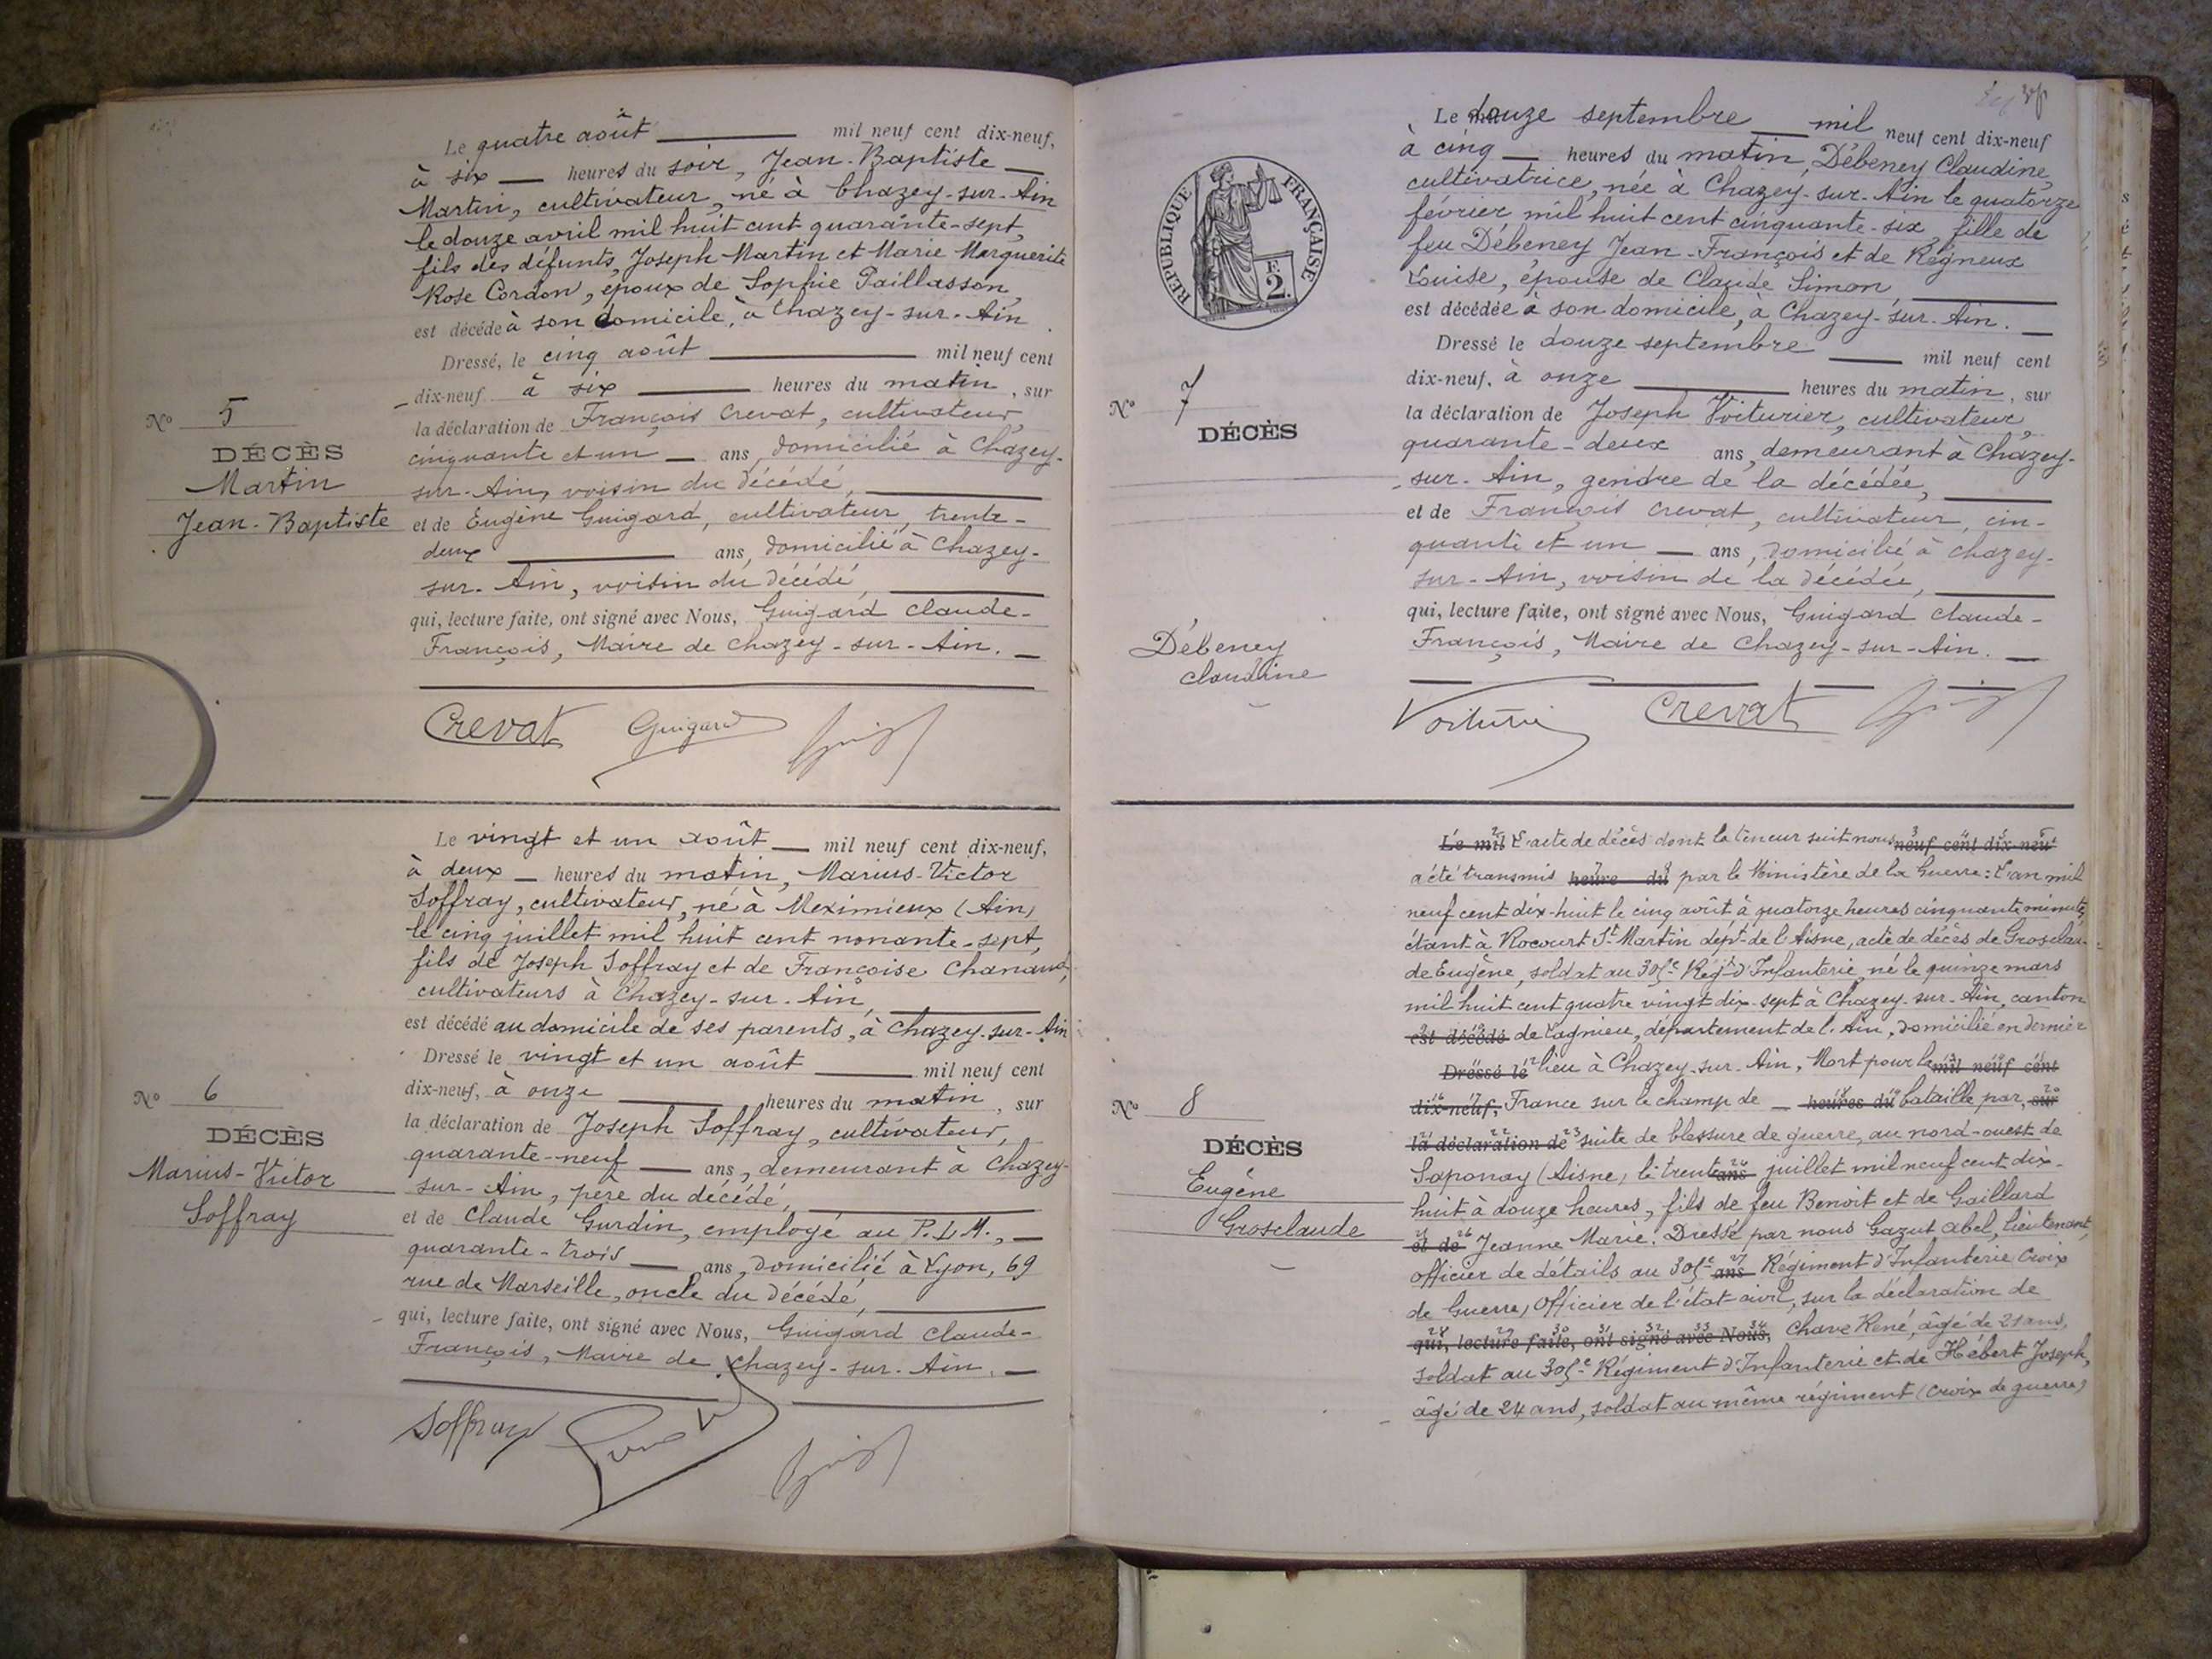 Le quatre août mil neuf cent dix-neuf,
à six heures du soir, Jean-Baptiste
Martin, cultivateur, né à Chazey-sur-Ain
le douze avril mil huit cent quarante-sept,
fils des défunts, Joseph Martin et Marie Marguerite
Rose Cordon, époux de Sophie Paillasson,
est décédé à son domicile, à Chazey-sur-Ain.
Dressé, le cinq août mil neuf cent
dix-neuf à six heures du matin, sur
la déclaration de François Crevat, cultivateur,
cinquante et un ans, domicilié à Chazey-
sur-Ain, voisin du décédé,
et de Eugène Guigard, cultivateur, trente-
deux ans, domicilié à Chazey-
sur-Ain, voisin du décédé,
qui, lecture faite, ont signé avec Nous, Guigard Claude-
François, Maire de Chazey-sur-Ain.
N° 5
DÉCÈS
Martin
Jean-Baptiste
Crevat Guigard
Le vingt et un août mil neuf cent dix-neuf,
à deux heures du matin, Marius-Victor
Soffray, cultivateur, né à Meximieux (Ain)
le cinq juillet mil huit cent nonante-sept,
fils de Joseph Soffray et de Françoise Chanaud,
cultivateurs à Chazey-sur-Ain,
est décédé au domicile de ses parents, à Chazey-sur-Ain
Dressé le vingt et un août mil neuf cent
dix-neuf, à onze heures du matin, sur
la déclaration de Joseph Soffray, cultivateur,
quarante-neuf ans, demeurant à Chazey-
sur-Ain, père du décédé,
et de Claude Gurdin, employé au P.L.M.,
quarante-trois ans, domicilié à Lyon, 69
rue de Marseille, oncle du décédé,
qui, lecture faite, ont signé avec Nous, Guigard Claude-
François, Maire de Chazey-sur-Ain.
N° 6
DÉCÈS
Marius-Victor
Soffray
Soffray
RÉPUBLIQUE FRANÇAISE
F.
2.
Le douze septembre mil neuf cent dix-neuf
à cinq heures du matin, Débeney Claudine,
cultivatrice, née à Chazey-sur-Ain le quatorze
février mil huit cent cinquante-six, fille de
feu Débeney Jean-François et de Régneux
Louise, épouse de Claude Simon,
est décédée à son domicile, à Chazey-sur-Ain.
Dressé le douze septembre mil neuf cent
dix-neuf, à onze heures du matin, sur
la déclaration de Joseph Voiturier, cultivateur,
quarante-deux ans, demeurant à Chazey-
sur-Ain, gendre de la décédée,
et de François Crevat, cultivateur, cin-
quante et un ans, domicilié à Chazey-
sur-Ain, voisin de la décédée,
qui, lecture faite, ont signé avec Nous, Guigard Claude-
François, Maire de Chazey-sur-Ain.
N° 7
DÉCÈS
Débeney
Claudine
Crevat
Le mil L'acte de décès dont la teneur suit nous neuf cent dix-neuf
a été transmis heure du par le Ministère de la Guerre: L'an mil
neuf cent dix-huit le cinq août à quatorze heures cinquante minutes,
étant à Rocourt St Martin dépt de l'Aisne, acte de décès de Grosclau-
de Eugène, soldat au 305e Régt d'Infanterie, né le quinze mars
mil huit cent quatre vingt dix-sept à Chazey-sur-Ain, canton
est décédé de Lagnieu, département de l'Ain, domicilié en dernier
Dressé le lieu à Chazey-sur-Ain, Mort pour la mil neuf cent
dix-neuf, France sur le champ de heures du bataille par, sur
la déclaration de suite de blessure de guerre, au nord-ouest de
Saponay (Aisne) le trente ans juillet mil neuf cent dix-
huit à douze heures, fils de feu Benoit et de Gaillard
et de Jeanne Marie. Dressé par nous Gazut Abel, lieutenant,
officier de détails au 305e ans Régiment d'Infanterie Croix
de Guerre, Officier de l'état-civil, sur la déclaration de
qui, lecture faite, ont signé avec Nous, Chave René, âgé de 21 ans,
soldat au 305e Régiment d'Infanterie et de Hébert Joseph,
âgé de 24 ans, soldat au même régiment (Croix de guerre)
N° 8
DÉCÈS
Eugène
Grosclaude